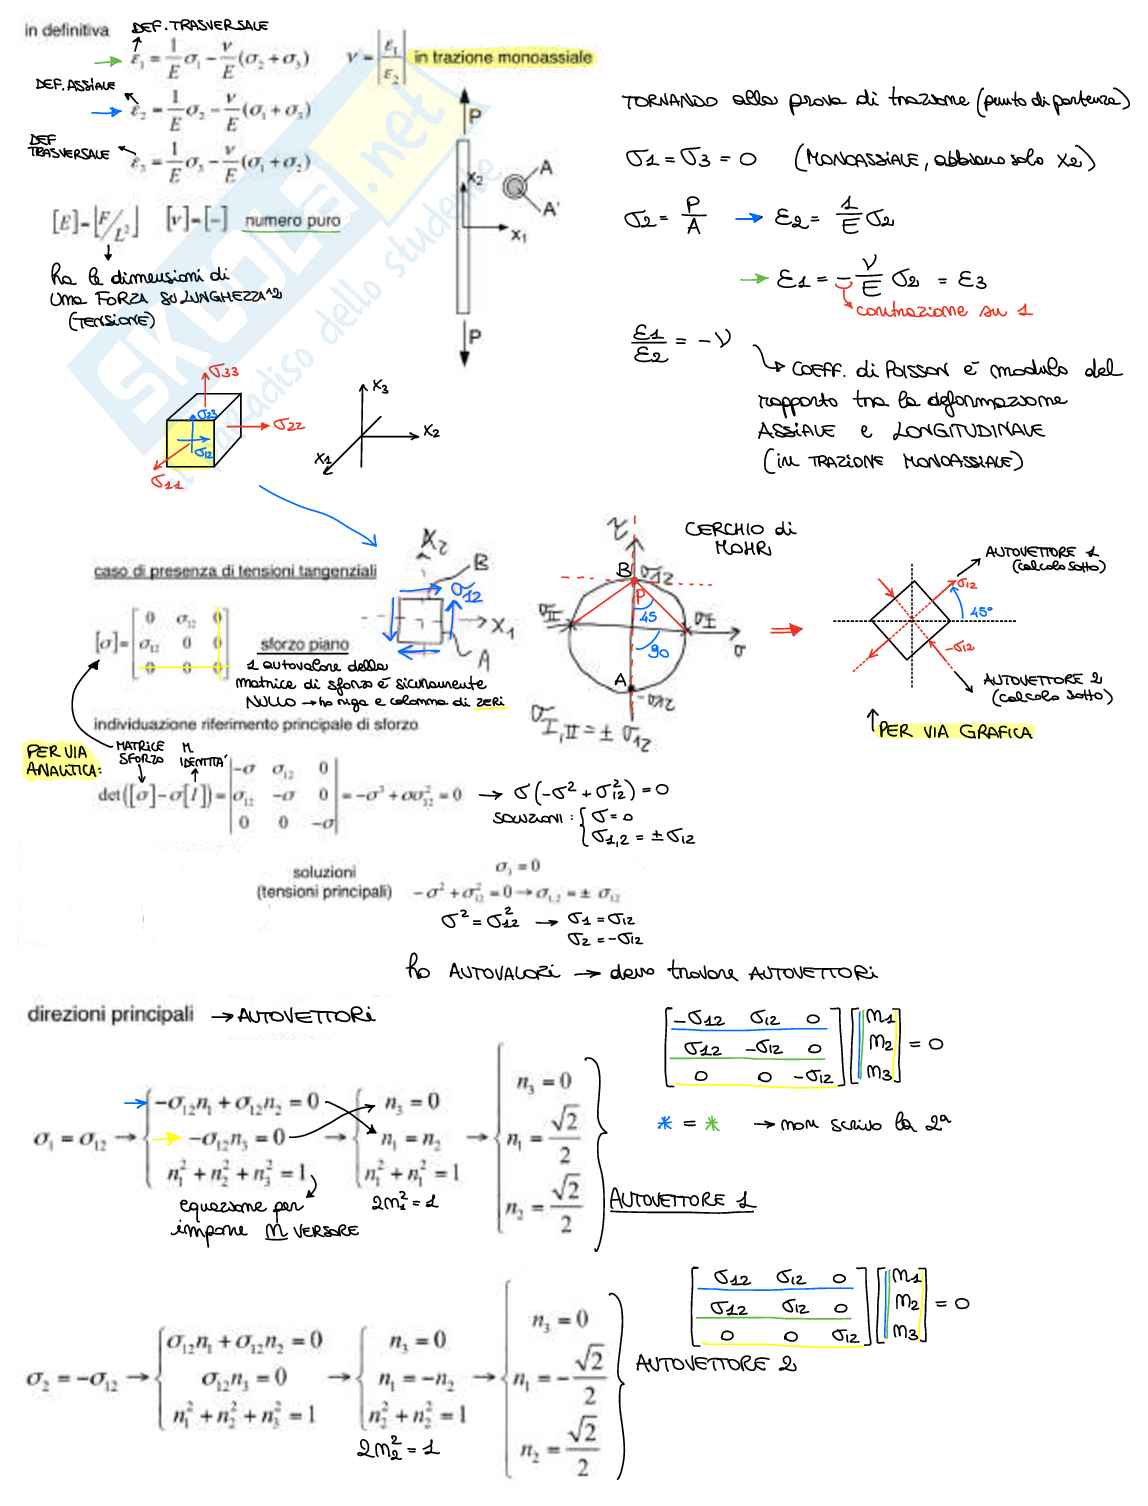 in definitiva
DEF. TRASVERSALE
ε₁ = 1/E σ₁ − ν/E (σ₂ + σ₃)
ν = |ε₁/ε₂| in trazione monoassiale
DEF. ASSIALE
ε₂ = 1/E σ₂ − ν/E (σ₁ + σ₃)
DEF TRASVERSALE
ε₃ = 1/E σ₃ − ν/E (σ₁ + σ₂)
[E] = [F/L²] [ν] = [−] numero puro
ha le dimensioni di
una FORZA SU LUNGHEZZA^2
(TENSIONE)
P
x₂
x₁
A
A'
P
SKUOLA.net
paradiso dello studente
TORNANDO alla prova di trazione (punto di partenza)
σ1 = σ3 = 0 (MONOASSIALE, abbiamo solo x2)
σ2 = P/A → ε2 = 1/E σ2
→ ε1 = − ν/E σ2 = ε3
contrazione su 1
ε1/ε2 = −ν
COEFF. di POISSON è modulo del
rapporto tra la deformazione
ASSIALE e LONGITUDINALE
(in TRAZIONE MONOASSIALE)
σ33
σ23
σ22
σ12
σ11
x3
x2
x1
caso di presenza di tensioni tangenziali
[σ] = [0 σ₁₂ 0
σ₁₂ 0 0
0 0 0]
sforzo piano
1 autovalore della
matrice di sforzo è sicuramente
NULLO → ha riga e colonna di ZERI
x2
B
σ12
x1
A
CERCHIO di
MOHR
τ
B
σ12
P
45
σII
σI
σ
90
A
-σ12
σI,II = ± σ12
AUTOVETTORE 1
(calcolo sotto)
σ12
45°
-σ12
AUTOVETTORE 2
(calcolo sotto)
PER VIA GRAFICA
individuazione riferimento principale di sforzo
PER VIA
ANALITICA:
MATRICE
SFORZO
M.
IDENTITA'
det([σ] − σ[I]) = |−σ σ₁₂ 0
σ₁₂ −σ 0
0 0 −σ| = −σ³ + σσ₁₂² = 0 → σ(−σ² + σ12²) = 0
SOLUZIONI: { σ = 0
σ1,2 = ± σ12
soluzioni
(tensioni principali)
σ₃ = 0
−σ² + σ₁₂² = 0 → σ₁,₂ = ± σ₁₂
σ² = σ12² → σ1 = σ12
σ2 = −σ12
ho AUTOVALORI → devo trovare AUTOVETTORI
direzioni principali → AUTOVETTORI
[−σ12 σ12 0
σ12 −σ12 0
0 0 −σ12] [m1
m2
m3] = 0
* = * → non scrivo la 2ª
σ₁ = σ₁₂ → { −σ₁₂n₁ + σ₁₂n₂ = 0
−σ₁₂n₃ = 0
n₁² + n₂² + n₃² = 1
→ { n₃ = 0
n₁ = n₂
n₁² + n₁² = 1
2m1² = 1
→ { n₃ = 0
n₁ = √2/2
n₂ = √2/2
AUTOVETTORE 1
equazione per
imporre M VERSORE
[σ12 σ12 0
σ12 σ12 0
0 0 σ12] [m1
m2
m3] = 0
σ₂ = −σ₁₂ → { σ₁₂n₁ + σ₁₂n₂ = 0
σ₁₂n₃ = 0
n₁² + n₂² + n₃² = 1
→ { n₃ = 0
n₁ = −n₂
n₂² + n₂² = 1
2m2² = 1
→ { n₃ = 0
n₁ = −√2/2
n₂ = √2/2
AUTOVETTORE 2